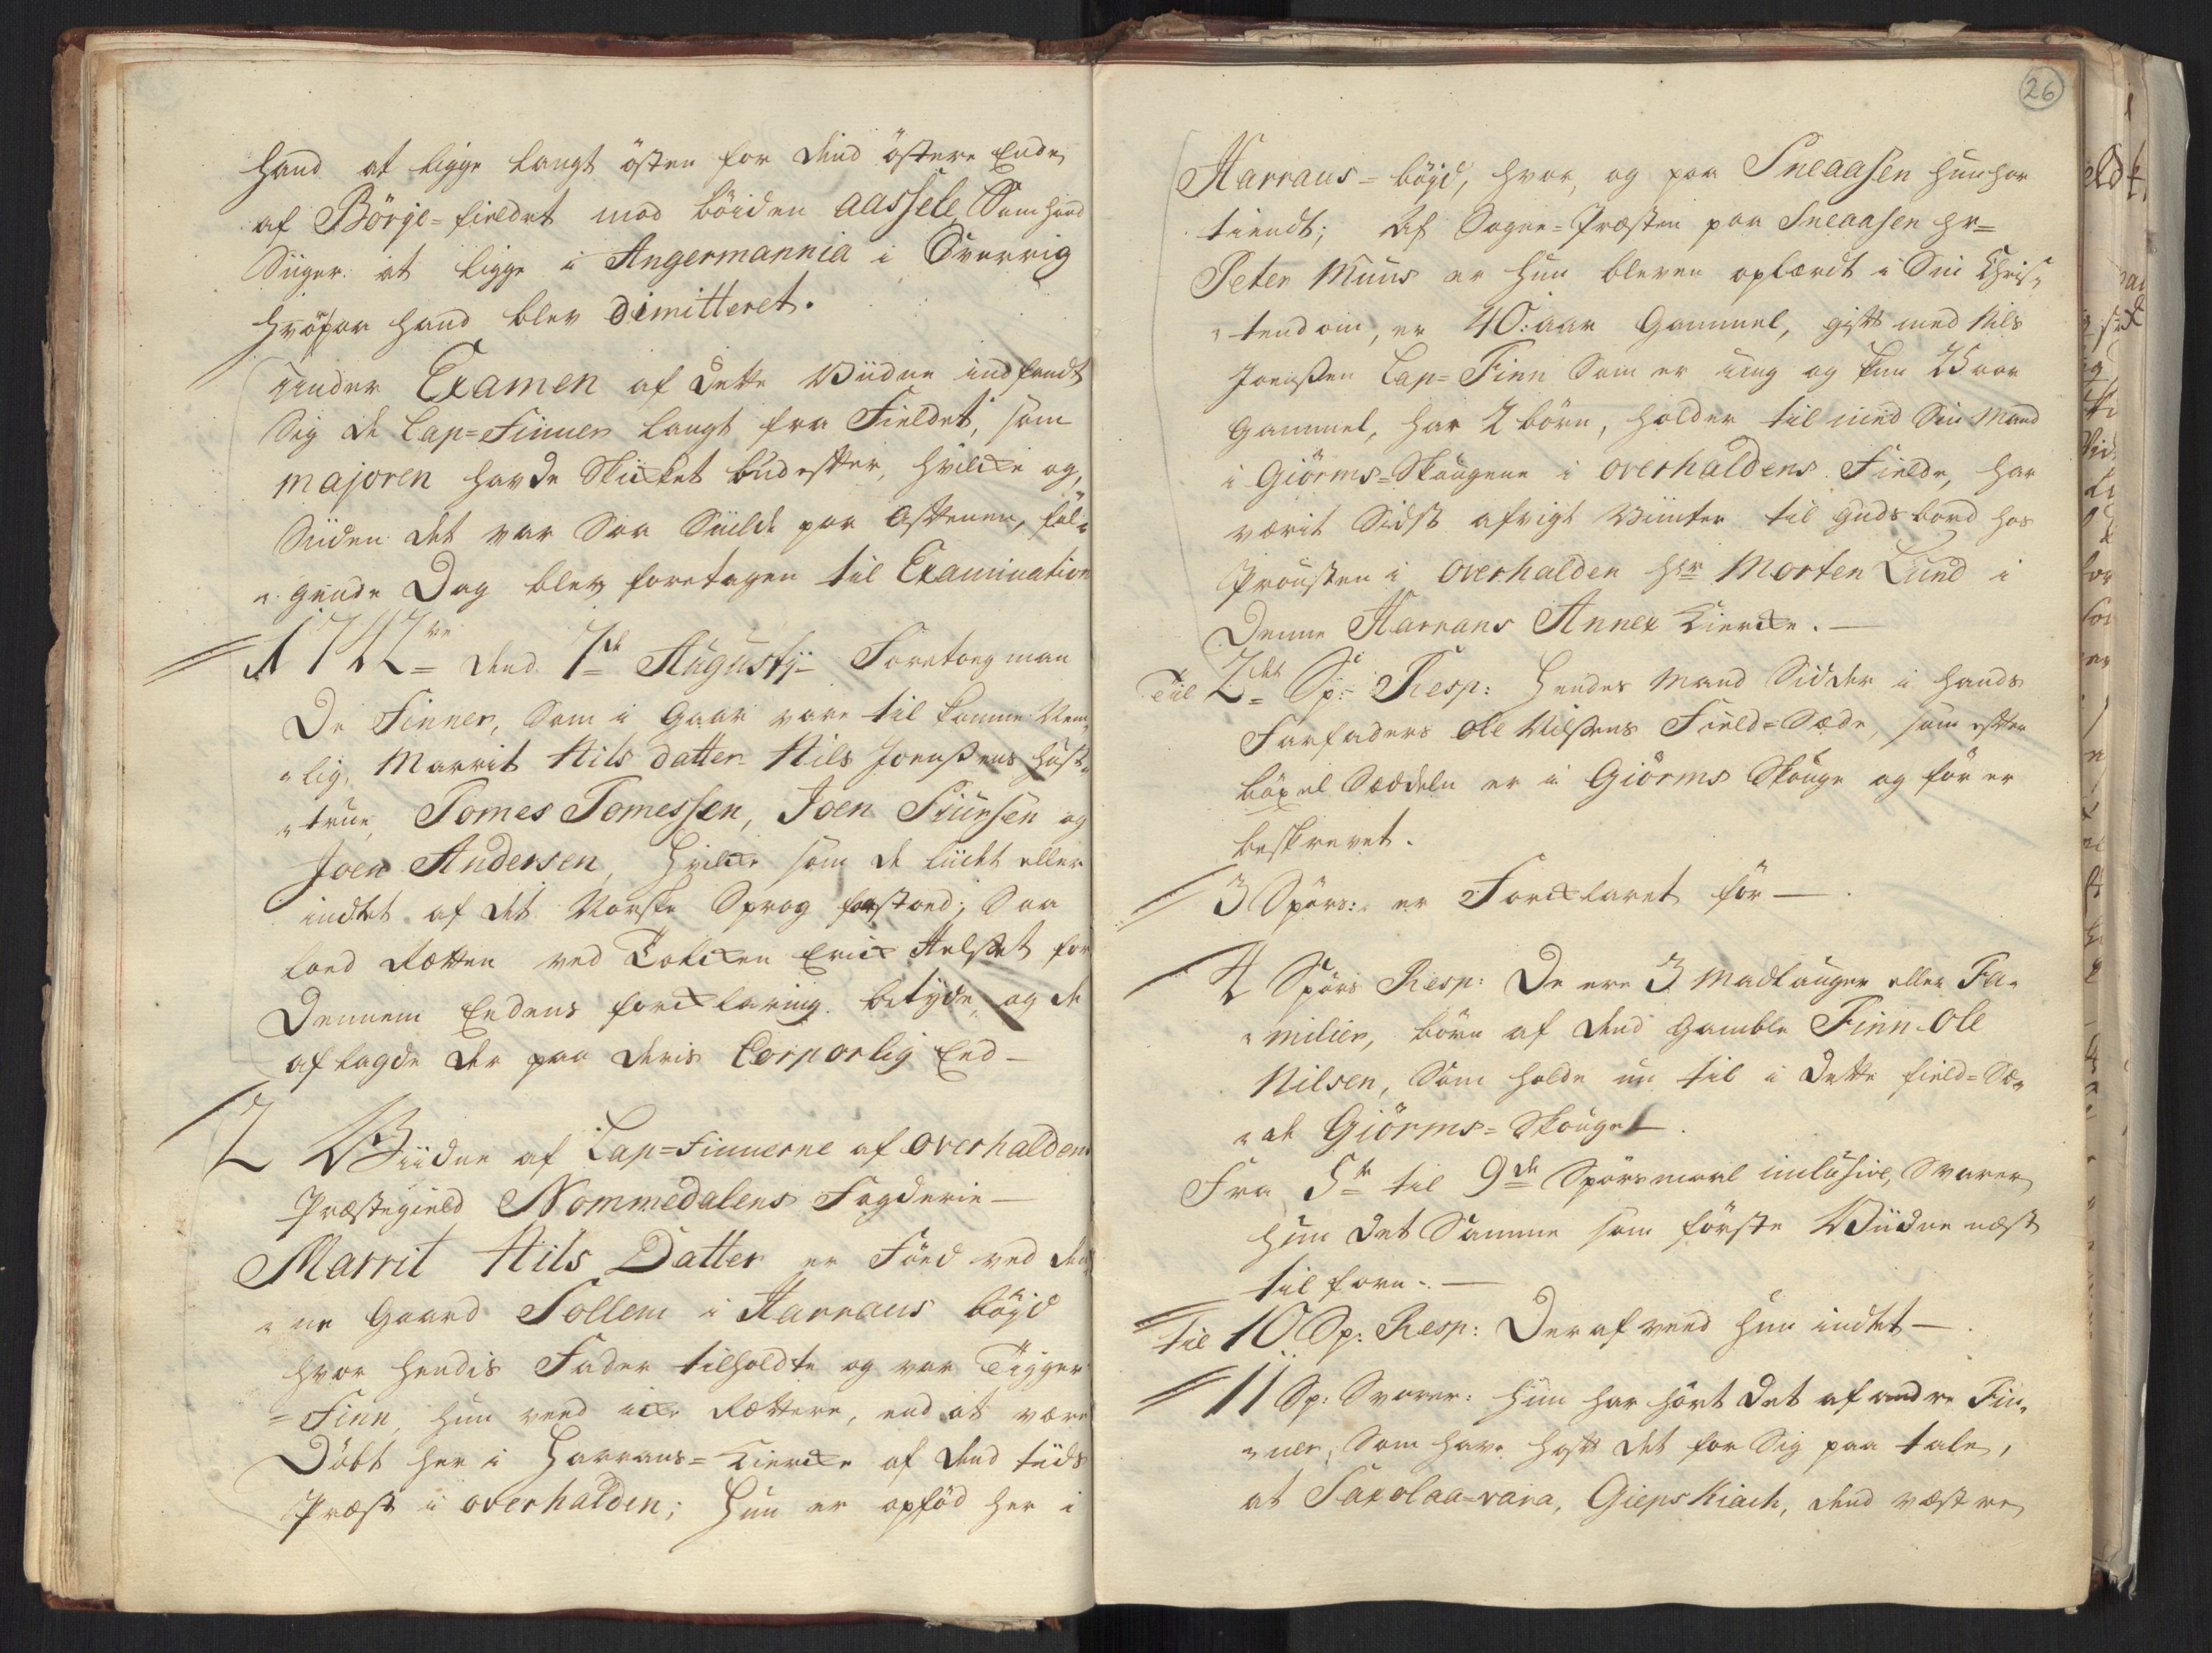 hand at ligge langt östen for dend östere Ende
af Börge-fieldet mod böiden aassele, Som hand
Siiger at ligge i Angermannia i Sverrig
hvorpaa hand blev dimitteret.
Under Examen af dette Viidne indfandt
Sig de Lap-Finner langt fra Fieldet, som
majoren havde Skicket bud efter, hvilcke og,
Siiden det var Saa Siilde paa Aftenen, föl-
gende Dag blev foretagen til Examination
1742 dend 7de Augustÿ Foretoeg man
De Finner, Som i Gaar vare til komne Nem-
lig, Marrit Nils datter Nils Joenssens Hust-
true, Tomes Tomessen, Joen Siursen og
Joen Andersen, hvilcke som de liidt eller
indtet af det Norske Sprog forstoed; Saa
loed Retten ved Tolcken Erick Helset for
Dennem Eedens forcklaring betyde, og de
aflagde der paa deris Corporlig Eed
2 Viidne af Lap-Finnerne af overhaldens
Præstegield Nommedalens Fogderie
Marrit Nils Datter er Föed ved den-
ne Gaard Sollem i Harrans bøyd
hvor hendis Fader tilholdte og var Tigger
-Finn, hun veed icke rettere, end at være
Döbt her i Harrans-Kiercke af dend tiids
Præst i overhalden; Hun er opföd her i
26
Harrans-böyd, hvor, og paa Sneaasen hun har
tiendt; Af Sogne-Præsten paa Sneaasen hr
Peter Muus er hun bleven oplærdt i Sin Chris-
tendom, er 40: aar Gammel, gift med Nils
Joenssen Lap-Finn Som er ung og kun 25 aar
Gammel, har 2 börn, holder til med Sin Mand
i Giörms-Skougene i overhaldens Fielde, har
værit Sidst afvigt Viinter til Guds bord hos
Provsten i overhalden Hr Morten Lund i
Denne Harrans Annex Kiercke.
Til 2det Sp: Resp: Hendes Mand Sidder i hands
Farfaders Ole Nilssens Field-Sæde, som efter
böxel Sæddelen er i Giörms Skouge og för er
beskrevet.
3 Spörs: er Forcklaret för
4 Spörs Resp: De ere 3 Madlauger eller Fa-
milier, börn af dend Gamble Finn Ole
Nilsen, Som holde nu til i dette field-Sæ-
de Giörms-Skouge
Fra 5te til 9de Spörsmaal inclusive, Svarer
hun det Samme som förste Viidne næst
tilforn.
til 10 Sp: Resp: Deraf veed hun indtet
11 Sp: Svarer: Hun har hört det af andre Fin-
ner, Som have haft det for Sig paa tale,
at Saxolaa-vara, Giepskiach, dend væstre